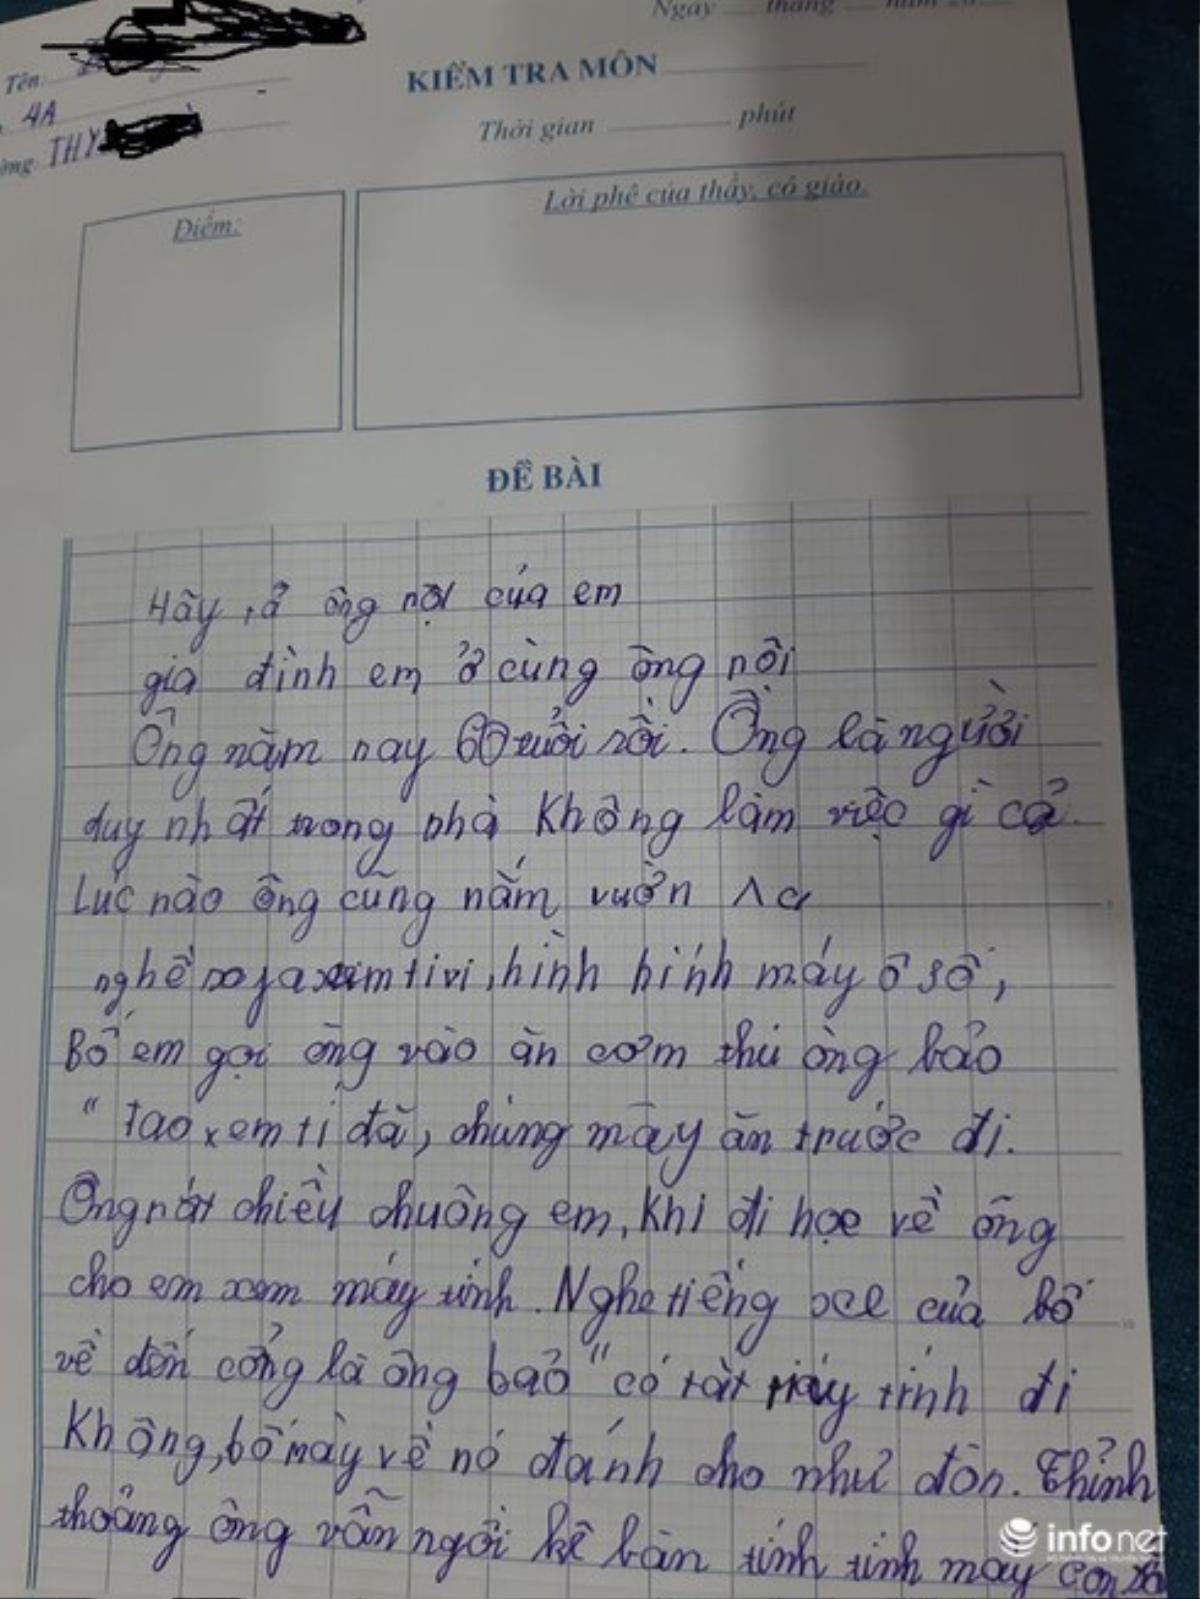 Ngày tháng năm 20
Tên:
4A
THY
KIỂM TRA MÔN
Thời gian phút
Điểm:
Lời phê của thầy, cô giáo.
ĐỀ BÀI
Hãy tả ông nội của em
gia đình em ở cùng ông nội
Ông năm nay 60 tuổi rồi. Ông là người
duy nhất trong nhà không làm việc gì cả.
Lúc nào ông cũng nằm vườn
nghế xem tivi, hình hính máy ồ sồ,
Bố em gọi ông vào ăn cơm thú ông bảo
"tao xem ti đã, chúng mày ăn trước đi.
Ông rất chiều chuông em, khi đi học về ông
cho em xem máy tính. Nghe tiếng xe của bố
về đến cổng là ông bảo "có tắt máy tính đi
không, bố mày về nó đánh cho như đòn. Thỉnh
thoảng ông vẫn ngồi kê bàn tính tính máy con
infonet